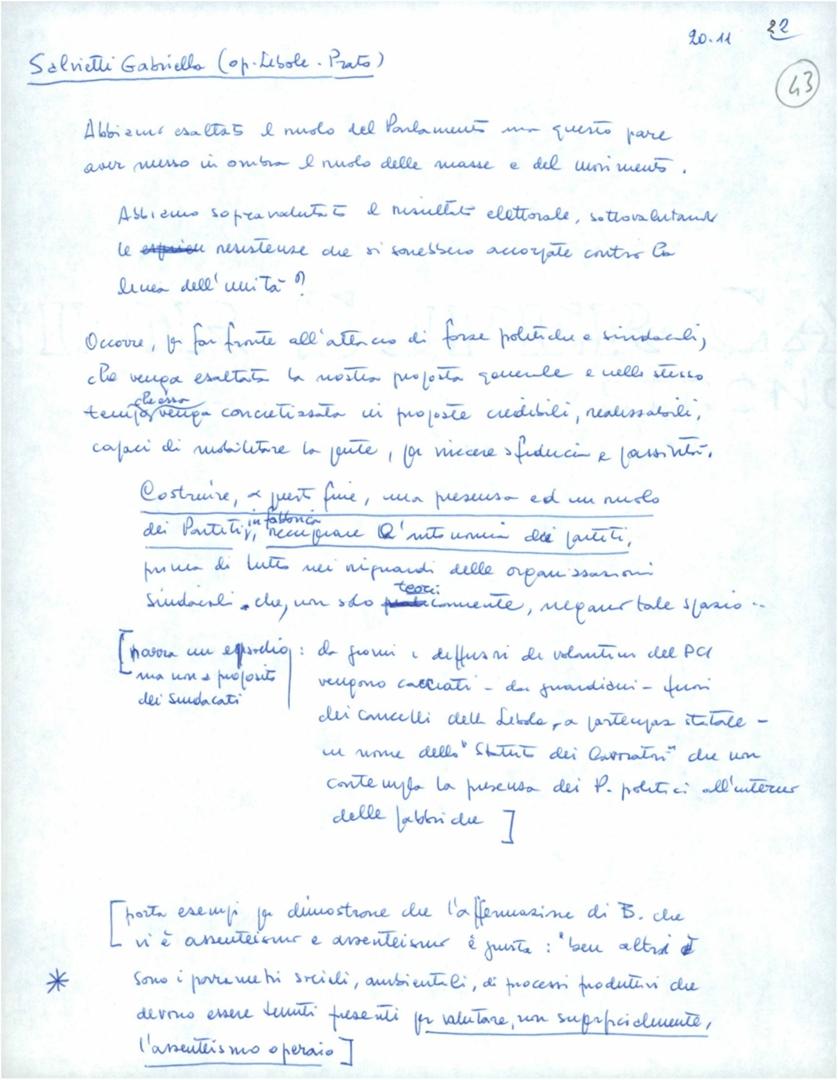 20.11 22
43
Salvietti Gabriella (op. Lebole - Prato)
Abbiamo esaltato il ruolo del Parlamento ma questo pare
aver messo in ombra il ruolo delle masse e del movimento.
Abbiamo sopravalutato il risultato elettorale, sottovalutando
le resistenze che si sarebbero accorpate contro la
linea dell'unità?
Occorre, per far fronte all'attacco di forze politiche e sindacali,
che venga esaltata la nostra proposta generale e nello stesso
tempo che essa venga concretizzata in proposte credibili, realizzabili,
capaci di mobilitare la gente, per vincere sfiducia e passività.
Costruire, a questo fine, una presenza ed un ruolo
dei Partiti in fabbrica, recuperare l'autonomia dei partiti,
prima di tutto nei riguardi delle organizzazioni
sindacali che, non solo teoricamente, negano tale spazio..
[narra un episodio: da giorni i diffusori di volantini del PCI
ma non a proposito vengono cacciati - dai guardiani - fuori
dei sindacati dei cancelli della Lebole, a partecipaz. statale -
in nome dello "Statuto dei lavoratori" che non
contempla la presenza dei P. politici all'interno
delle fabbriche]
[porta esempi per dimostrare che l'affermazione di B. che
vi è assenteismo e assenteismo è giusta: "ben altri
* sono i parametri sociali, ambientali, di processi produttivi che
devono essere tenuti presenti per valutare, non superficialmente,
l'assenteismo operaio]